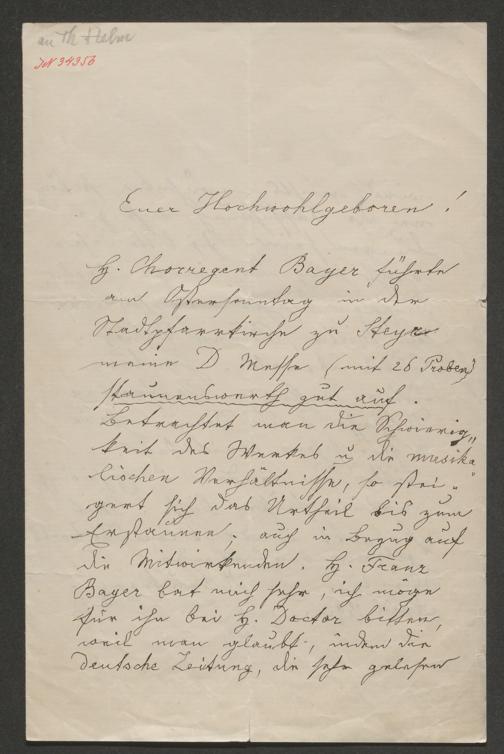 an Th Helm
JN 34356
Euer Hochwohlgeboren!
H. Chorregent Bayer führte
am Ostersonntag in der
Stadtpfarrkirche zu Steyr
meine D Messe (mit 26 Proben)
staunenswerth gut auf.
Betrachtet man die Schwierig„
keit des Werkes u die musika„
lischen Verhältnisse, so stei„
gert sich das Urtheil bis zum
Erstaunen; auch in Bezug auf
die Mitwirkenden. H. Franz
Bayer bat mich sehr, ich möge
für ihn bei H. Doctor bitten,
weil man glaubt, indem die
deutsche Zeitung, die sehr gelesen